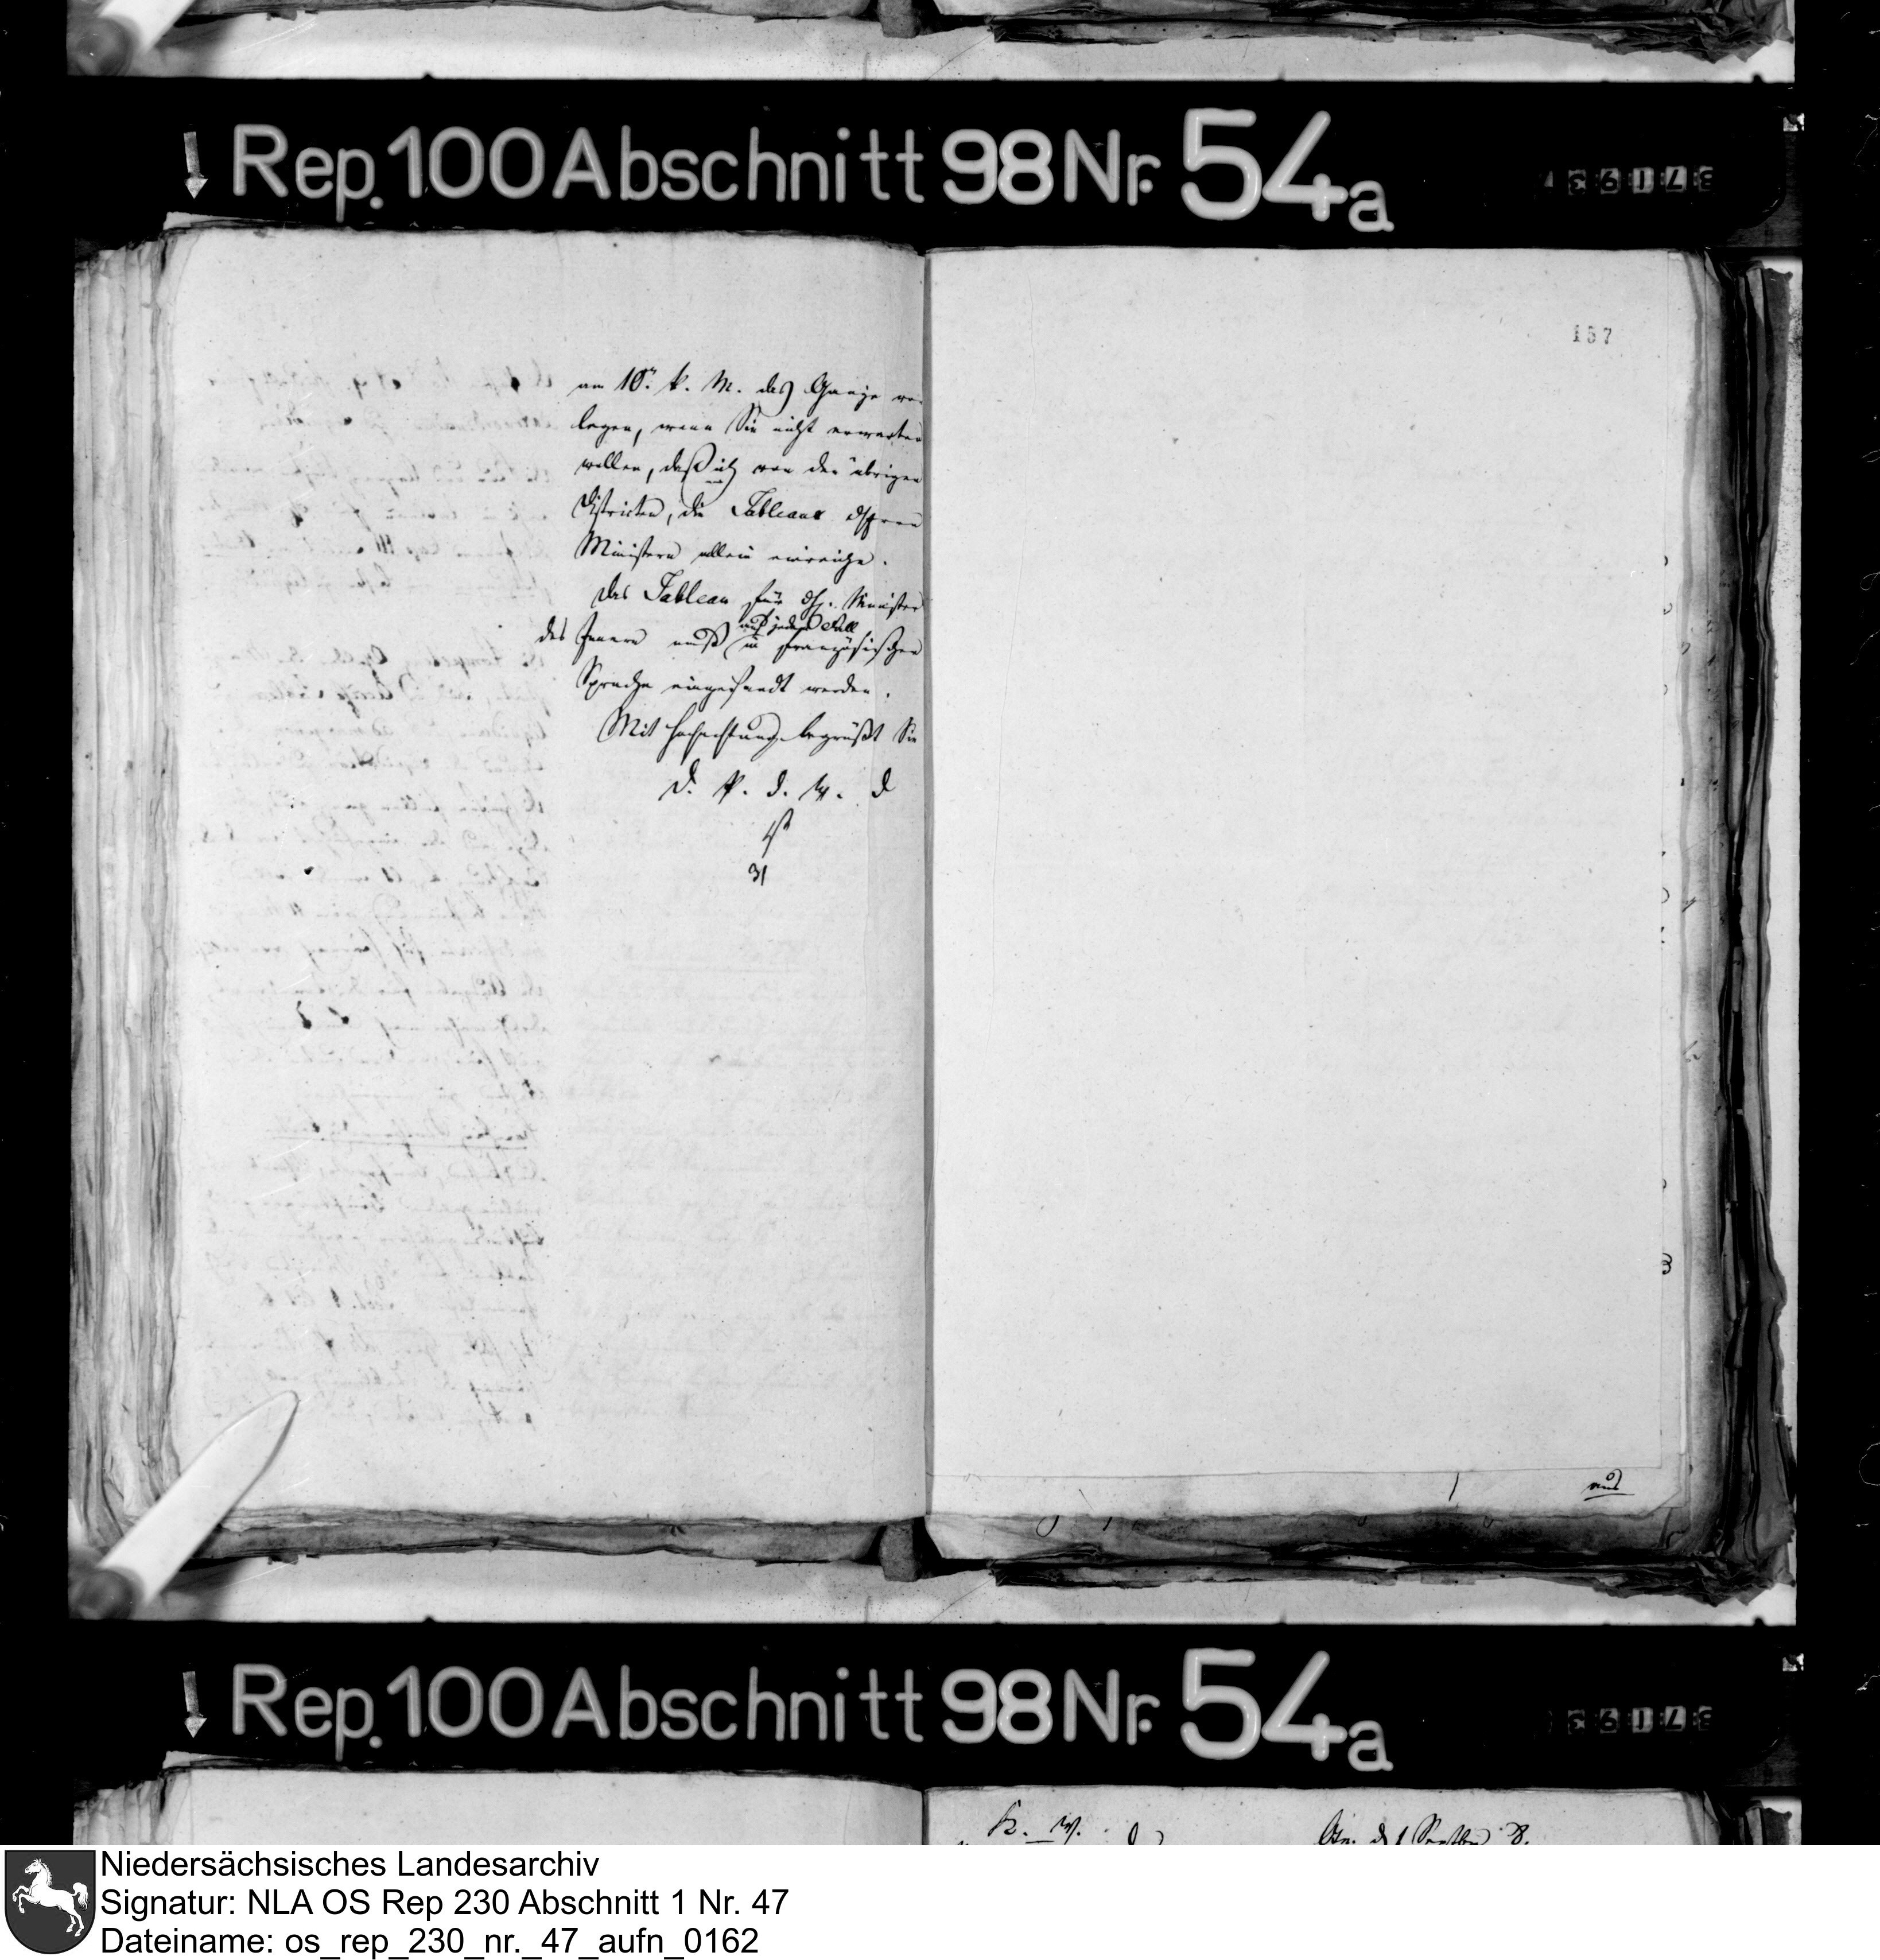 Rep. 100 Abschnitt 98 Nr. 54a
157
am 10.ⁿ k. M. das Ganze vor
legen, wenn Sie nicht erwarten
wollen, daß ich von den übrigen
Districten, die Tableaux
Ministern allein einreiche.
Das Tableau für Minister
des Innern muß auf jeden Fall in französischer
Sprache eingesandt werden.
Mit Hochachtung begrüßt Sie
D. P. d. W. D
31
und
Rep. 100 Abschnitt 98 Nr. 54a
K. W.
Osn. d 1 Septbr 8.
Niedersächsisches Landesarchiv
Signatur: NLA OS Rep 230 Abschnitt 1 Nr. 47
Dateiname: os_rep_230_nr._47_aufn_0162